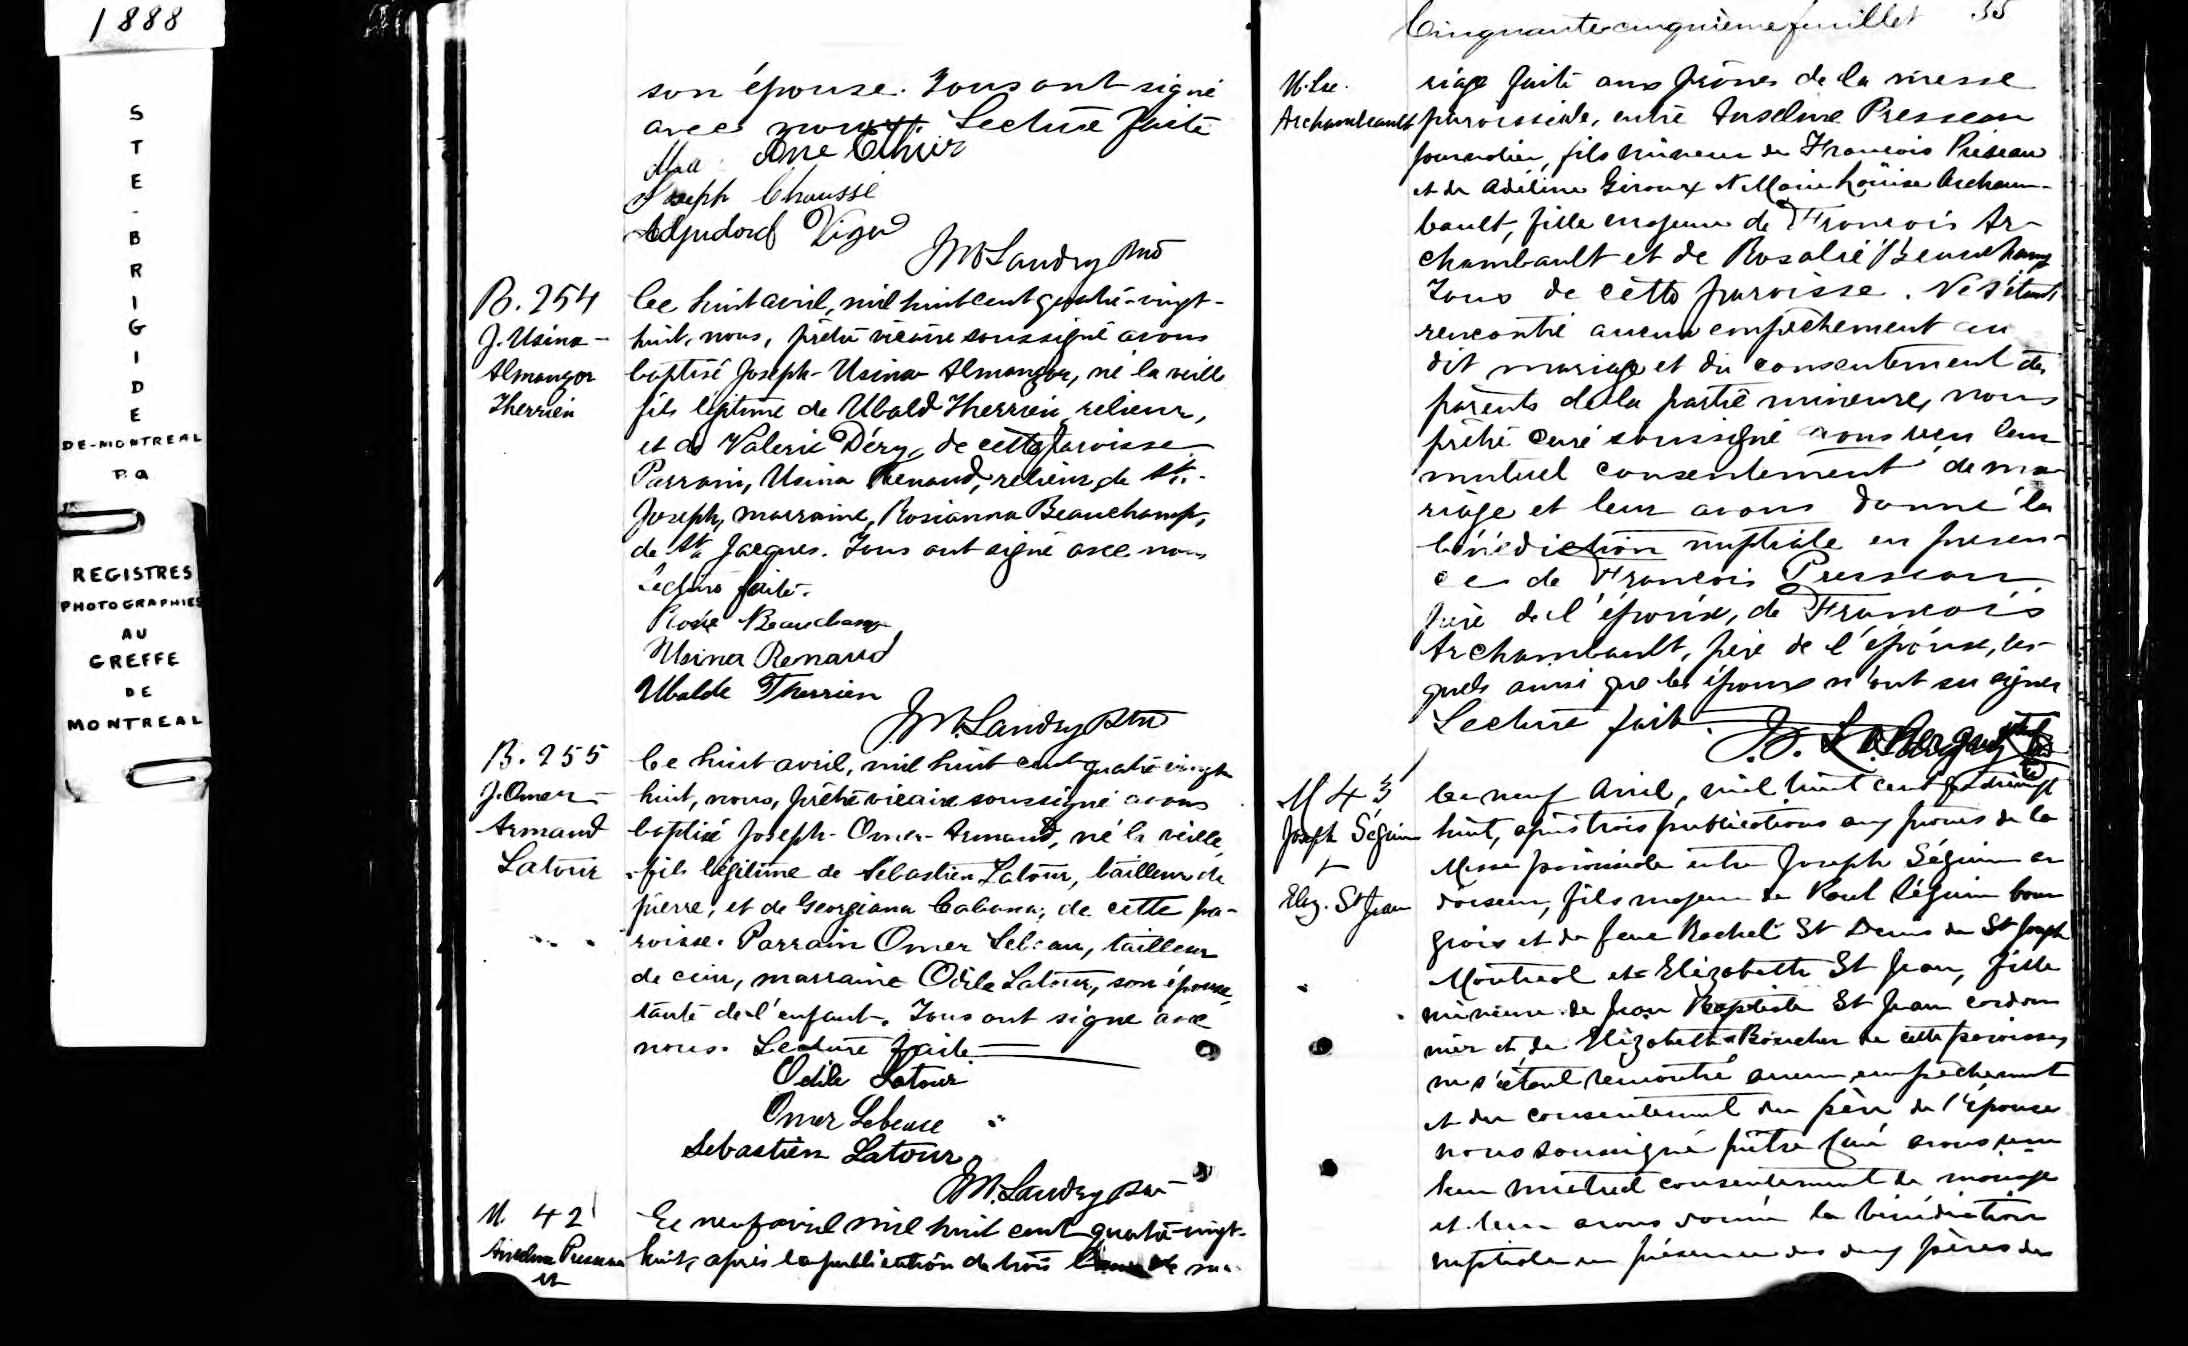 1888
STE-BRIGIDE
DE-MONTREAL
P.Q
REGISTRES
PHOTOGRAPHIES
AU
GREFFE
DE
MONTREAL
son épouse. Tous ont signé
avec nous. Lecture faite
Joseph Chaussé
Vigeo
JM Landry Ptre
B. 254
J. Usina-
Almanzor
Therrien
Ce huit avril, mil huit cent quatre-vingt-
huit, nous, prêtre vicaire soussigné avons
baptisé Joseph-Usina Almanzor, né la veille
fils légitime de Ubald Therrien, relieur,
et de Valerie Déry, de cette paroisse
Parrain, Usina Renaud, relieur, de St.-
Joseph, marraine, Rosianna Beauchamp,
de St Jacques. Tous ont signé avec nous
Lecture faite.
Rosie Beauchamp
Usina Renaud
Ubalde Therrien
J.M. Landry Ptre
B. 255
J. Omer-
Armand
Latour
Ce huit avril, mil huit cent quatre-vingt
huit, nous, prêtre vicaire soussigné avons
baptisé Joseph-Omer-Armand, né la veille,
fils légitime de Sébastien Latour, tailleur de
pierre, et de Georgiana Cabana, de cette pa-
roisse. Parrain Omer Lebeau, tailleur
de cuir, marraine Odila Latour, son épouse,
tante de l'enfant. Tous ont signé avec
nous. Lecture faite
Odile Latour
Omer Lebeau
Sebastien Latour
JM. Landry Ptre
M 42
Anselme Presseau
et
Le neuf avril mil huit cent quatre-vingt-
huit, après la publication de trois bans de ma-
Cinquante-cinquième feuillet 55
M. Lse.
Archambault
riage faite aux prônes de la messe
paroissiale, entre Anselme Presseau
journalier, fils mineur de François Préseau
et de Adéline Giroux et Marie Louise Archam-
bault, fille majeure de François Ar-
chambault et de Rosalie Beauchamp
Tous de cette paroisse. Ne s'étant
rencontré aucun empêchement au
dit mariage et du consentement des
parents de la partie mineure, nous
prêtre curé soussigné avons reçu leur
mutuel consentement de ma-
riage et leur avons donné la
bénédiction nuptiale en présen-
ce de François Presseau
père de l'époux, de François
Archambault, père de l'épouse, les-
quels ainsi que les époux n'ont su signer
Lecture faite.
M 43
Joseph Séguin
+
Eliz. St Jean
Ce neuf Avril, mil huit cent quatrevingt
huit, après trois publications aux prones de la
Messe paroissiale entre Joseph Séguin ar
doiseur, fils majeur de Paul Séguin bour
geois et de feue Rachel St Denis de St Joseph
Montreal et Elizabeth St Jean, fille
mineure de Jean Baptiste St Jean cordon
nier et de Elizabeth Boucher de cette paroisse,
ne s'étant rencontré aucun empêchement
et du consentement du père de l'épouse
nous soussigné prêtre Curé avons reçu
leur mutuel consentement de mariage
et leur avons donné la bénédiction
nuptiale en présence des deux pères des